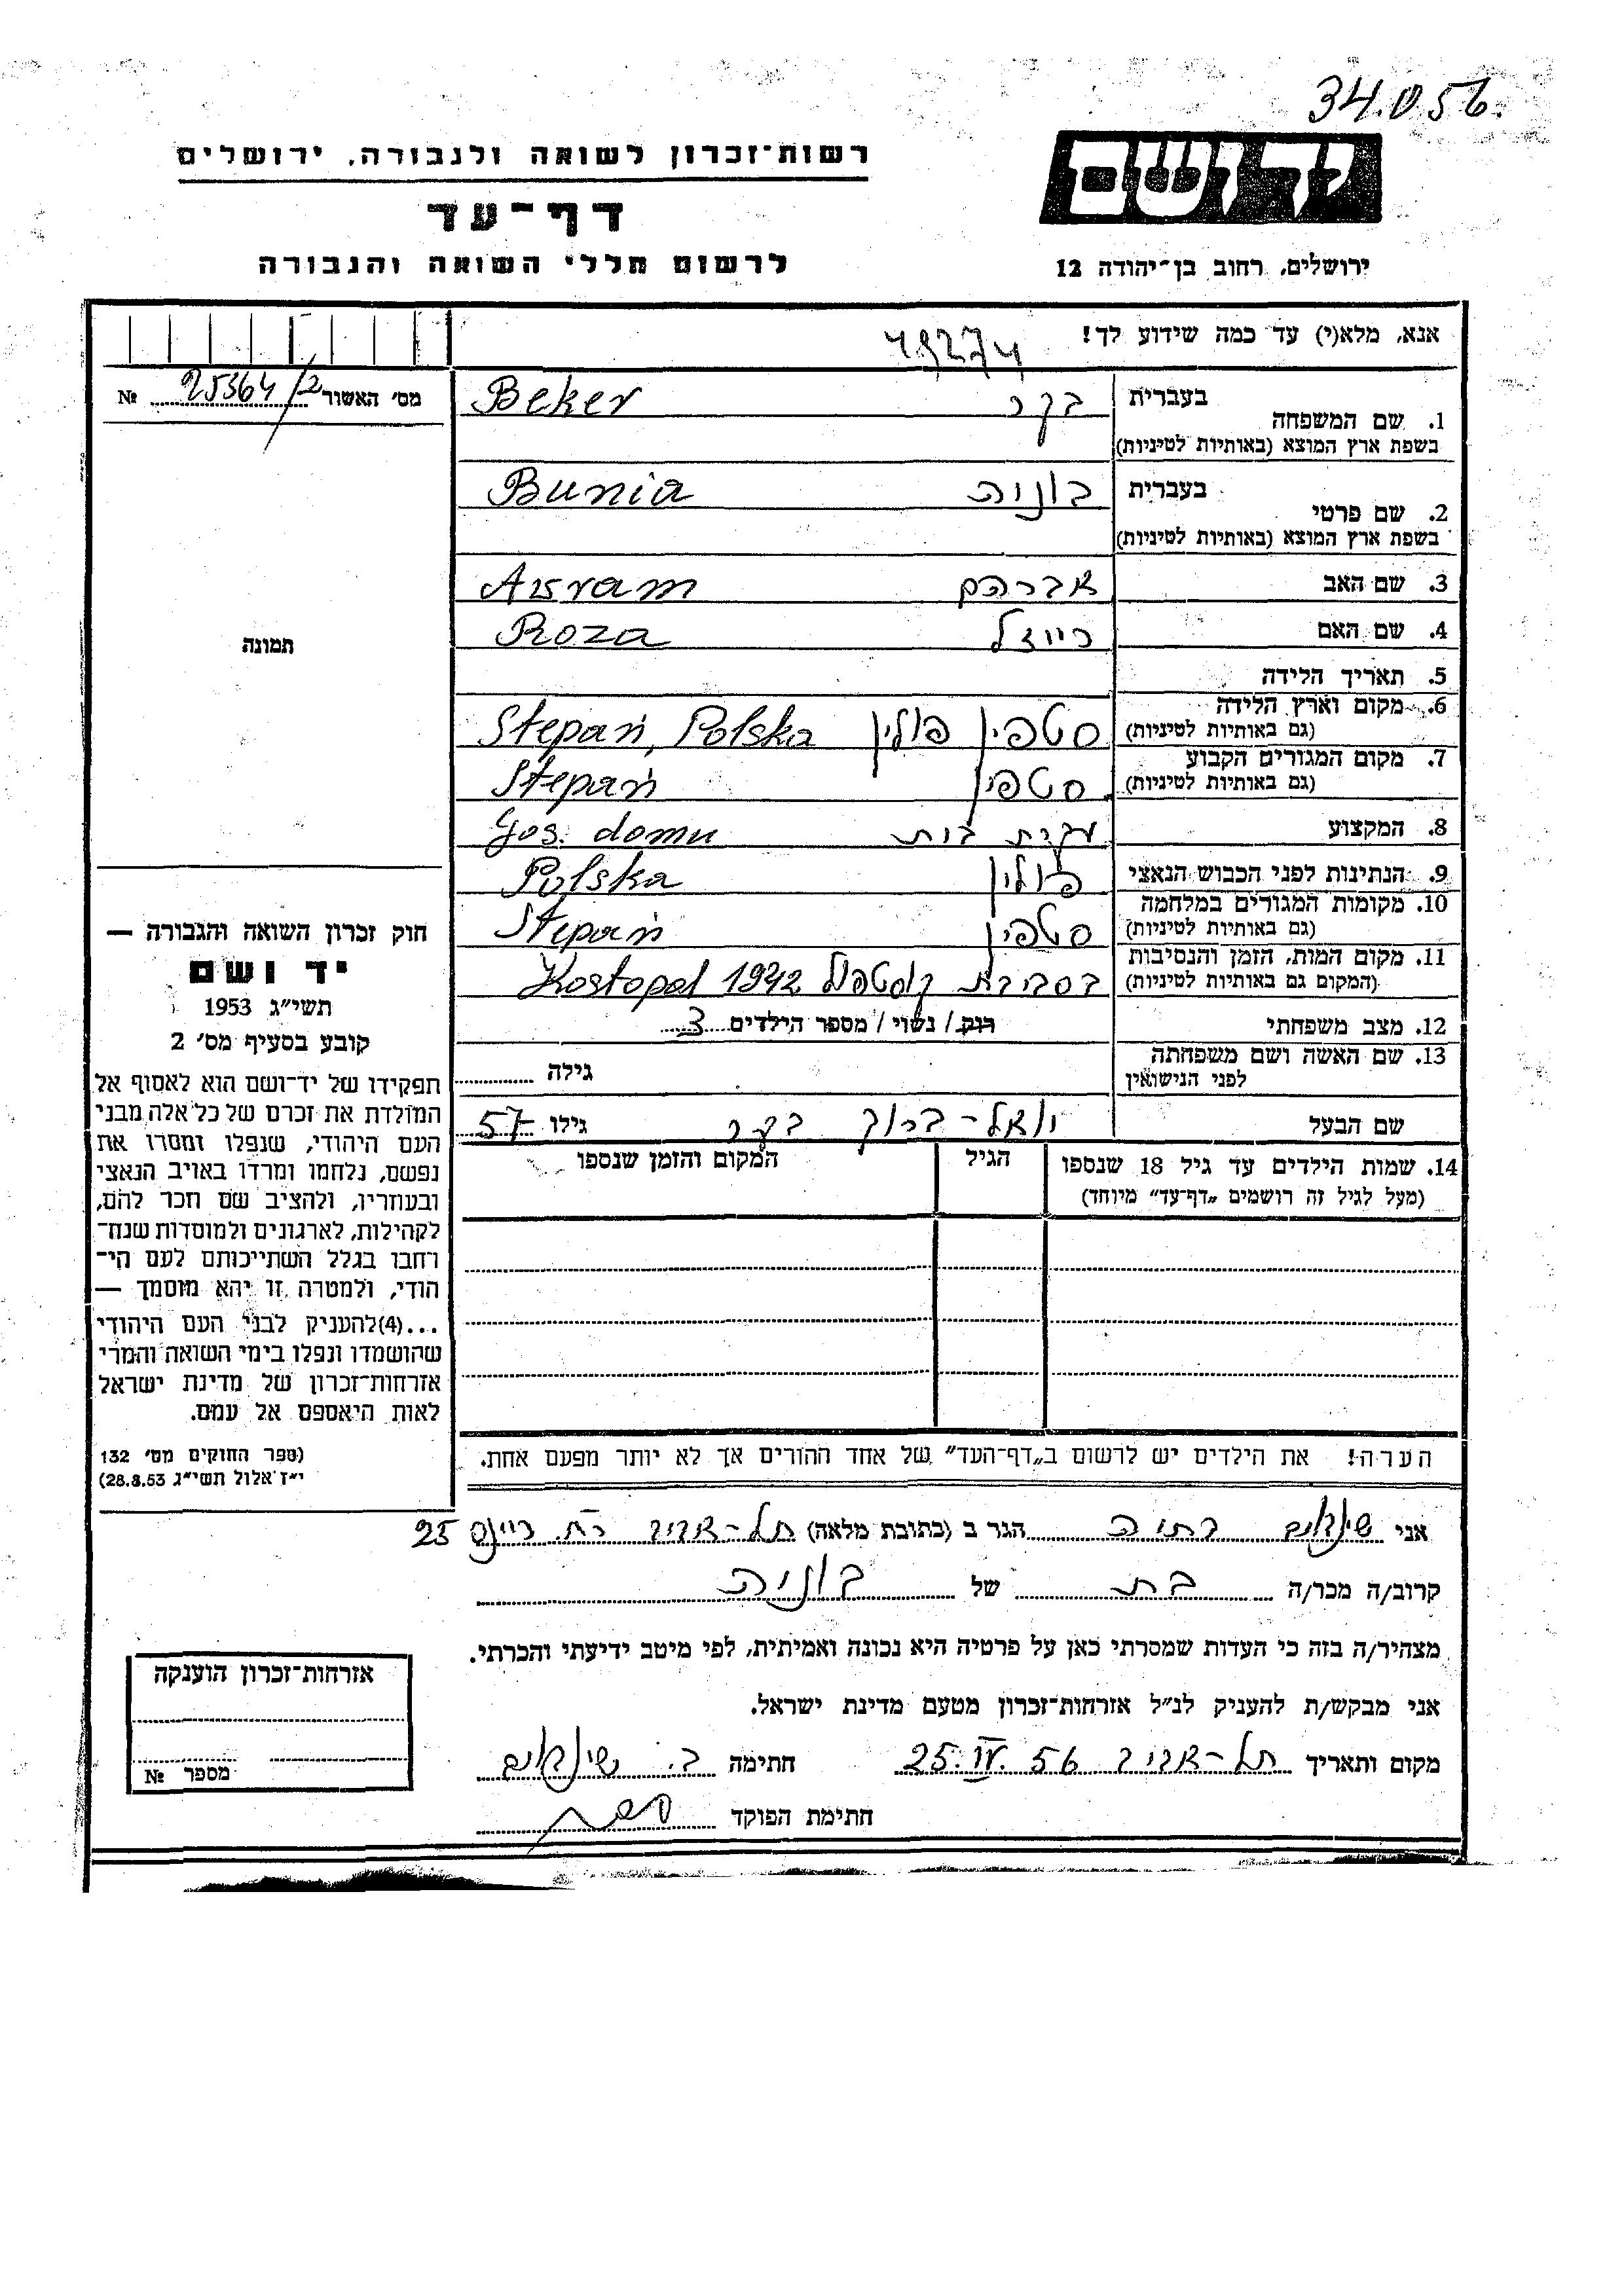 34.056.
יד ושם
רשות־זכרון לשואה ולגבורה, ירושלים
דף־עד
לרשום חללי השואה והגבורה
ירושלים, רחוב בן־יהודה 12
אנא, מלא(י) עד כמה שידוע לך!
49274
מס׳ האשור 25364/2 №
1. שם המשפחה בעברית בקר Beker
בשפת ארץ המוצא (באותיות לטיניות)
2. שם פרטי בעברית בוניה Bunia
בשפת ארץ המוצא (באותיות לטיניות)
3. שם האב אברהם Avram
4. שם האם רייזל Roza
5. תאריך הלידה
6. מקום וארץ הלידה סטפין פולין Stepań, Polska
(גם באותיות לטיניות)
7. מקום המגורים הקבוע סטפין Stepań
(גם באותיות לטיניות)
8. המקצוע עקרת בית Gos. domu
9. הנתינות לפני הכבוש הנאצי פולין Polska
10. מקומות המגורים במלחמה סטפין Stepań
(גם באותיות לטיניות)
11. מקום המות, הזמן והנסיבות בסביבת קוסטפול Kostopol 1942
(המקום גם באותיות לטיניות)
12. מצב משפחתי רווק / נשוי / מספר הילדים 3
13. שם האשה ושם משפחתה גילה
לפני הנישואין
שם הבעל יואל־ברוך בקר גילו 57
14. שמות הילדים עד גיל 18 שנספו הגיל המקום והזמן שנספו
(מעל לגיל זה רושמים „דף־עד” מיוחד)
הערה! את הילדים יש לרשום ב„דף־העד” של אחד ההורים אך לא יותר מפעם אחת.
תמונה
חוק זכרון השואה והגבורה —
יד ושם
תשי״ג 1953
קובע בסעיף מס׳ 2
תפקידו של יד־ושם הוא לאסוף אל
המולדת את זכרם של כל אלה מבני
העם היהודי, שנפלו ומסרו את
נפשם, נלחמו ומרדו באויב הנאצי
ובעוזריו, ולהציב שם וזכר להם,
לקהילות, לארגונים ולמוסדות שנח־
רבו בגלל השתייכותם לעם הי־
הודי, ולמטרה זו יהא מוסמך —
...(4) להעניק לבני העם היהודי
שהושמדו ונפלו בימי השואה והמרי
אזרחות־זכרון של מדינת ישראל
לאות היאספם אל עמם.
(ספר החוקים מס׳ 132
י״ז אלול תשי״ג 28.8.53)
אני הגר ב (כתובת מלאה) תל־אביב רח׳ ריינס 25
קרוב/ה מכר/ה בת של בוניה
מצהיר/ה בזה כי העדות שמסרתי כאן על פרטיה היא נכונה ואמיתית, לפי מיטב ידיעתי והכרתי.
אני מבקש/ת להעניק לנ״ל אזרחות־זכרון מטעם מדינת ישראל.
מקום ותאריך תל־אביב 25.IV.56 חתימה
חתימת הפוקד
אזרחות־זכרון הוענקה
מספר №